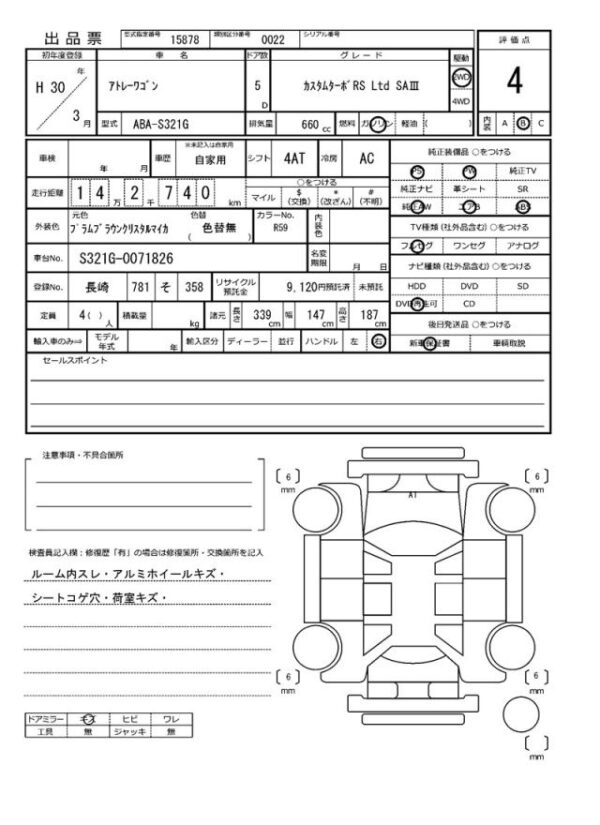 出品票 型式指定番号 15878 類別区分番号 0022 シリアル番号
評価点
初年度登録 車名 ドア数 グレード 駆動
H 30 年 3 月 アトレーワゴン 5 D カスタムターボRS Ltd SAⅢ 2WD 4WD
4
型式 ABA-S321G 排気量 660 cc 燃料 ガソリン 軽油 ( )
内装 A B C
車検 年 月 車歴 ※未記入は自家用 自家用 シフト 4AT 冷房 AC
純正装備品 ○をつける
PS PW 純正TV
純正ナビ 革シート SR
純正AW エアB ABS
走行距離 14万2千740 km
○をつける
マイル $(交換) *(改ざん) #(不明)
外装色 元色 プラムブラウンクリスタルマイカ 色替 ( 色替無 ) カラーNo. R59 内装色
TV種類(社外品含む) ○をつける
フルセグ ワンセグ アナログ
車台No. S321G-0071826 名変期限 月 日
ナビ種類(社外品含む) ○をつける
HDD DVD SD
DVD再生可 CD
登録No. 長崎 781 そ 358 リサイクル預託金 9,120円預託済 未預託
定員 4( )人 積載量 kg 諸元 長さ 339 cm 幅 147 cm 高さ 187 cm
後日発送品 ○をつける
新車保証書 車輌取説
輸入車のみ⇒ モデル年式 年 輸入区分 ディーラー 並行 ハンドル 左 右
セールスポイント
注意事項・不具合箇所
( 6 ) mm
( 6 ) mm
A1
検査員記入欄:修復歴「有」の場合は修復箇所・交換箇所を記入
ルーム内スレ・アルミホイールキズ・
シートコゲ穴・荷室キズ・
( 6 ) mm
( 6 ) mm
ドアミラー キズ ヒビ ワレ
工具 無 ジャッキ 無
( ) mm